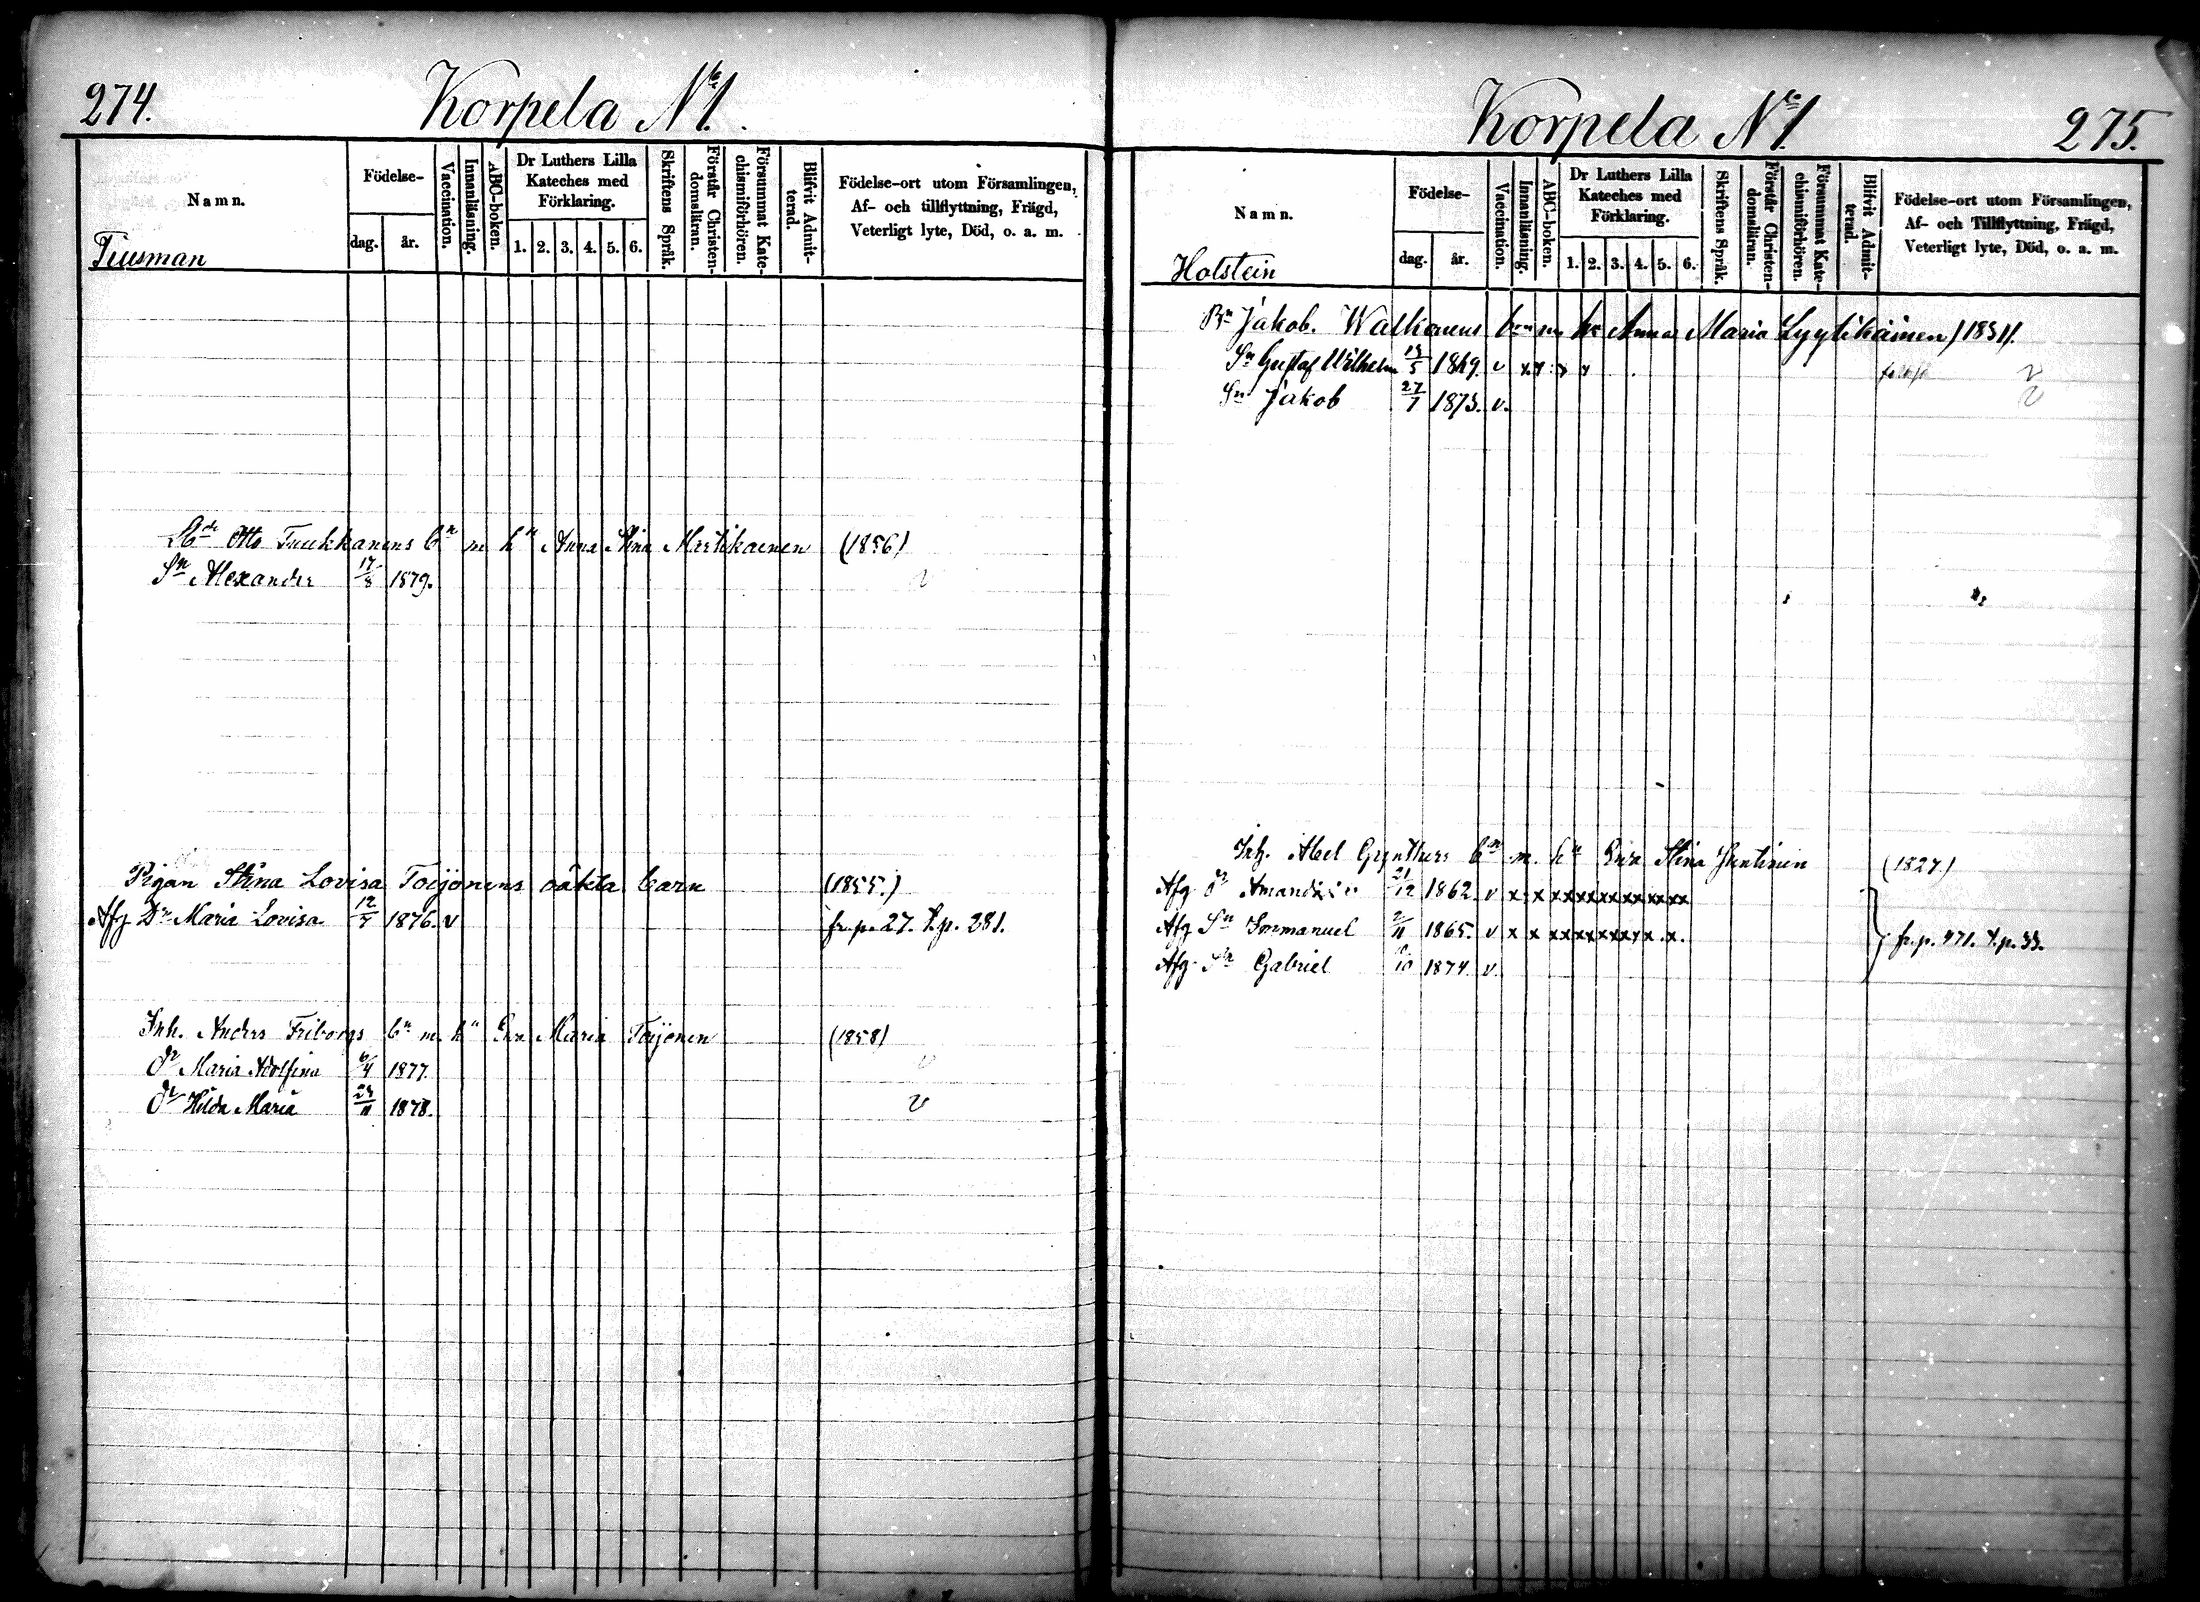 274.
Korpela No 1.
Namn.
Födelse-
dag.
år.
Vaccination.
Innanläsning.
ABC-boken.
Dr Luthers Lilla
Kateches med
Förklaring.
1. 2. 3. 4. 5. 6.
Skriftens Språk.
Förstår Christen-
domsläran.
Försummat Kate-
chismiförhören.
Blifvit Admit-
terad.
Födelse-ort utom Församlingen,
Af- och tillflyttning, Frägd,
Veterligt lyte, Död, o. a. m.
Tiusman
Otto Tuukkanens bn m hu Anna Stina Martikainen (1856)
Sn Alexander 17/8 1879.
Pigan Stina Lovisa Toijonens oäkta barn (1855.)
Afg Dr Maria Lovisa 12/7 1876. v fr. p. 27. t. p. 281.
Inh. Anders Friborgs bn m hu Eva Maria Toijonen (1858)
Dr Maria Adolfina 6/4 1877.
Dr Hilda Maria 23/11 1878.
Korpela No 1
275.
Namn.
Födelse-
dag.
år.
Vaccination.
Innanläsning.
ABC-boken.
Dr Luthers Lilla
Kateches med
Förklaring.
1. 2. 3. 4. 5. 6.
Skriftens Språk.
Förstår Christen-
domsläran.
Försummat Kate-
chismiförhören.
Blifvit Admit-
terad.
Födelse-ort utom Församlingen,
Af- och Tillflyttning, Frägd,
Veterligt lyte, Död, o. a. m.
Holstein
Bn Jakob Walkonens bn m hu Anna Maria Lyytikäinen (1831).
Sn Gustaf Wilhelm 1869. v x x x x
Sn Jakob 27/7 1873. v.
Inh. Abel Gynthers bn m hu Eva Stina Janhinen (1827)
Afg Dr Amanda 21/12 1862. v x x x x x x x x x x x x x
Afg Sn Immanuel 2/11 1865. v x x x x x x x x x x x. fr. p. 471. t. p. 33.
Afg Sn Gabriel 1874 v.